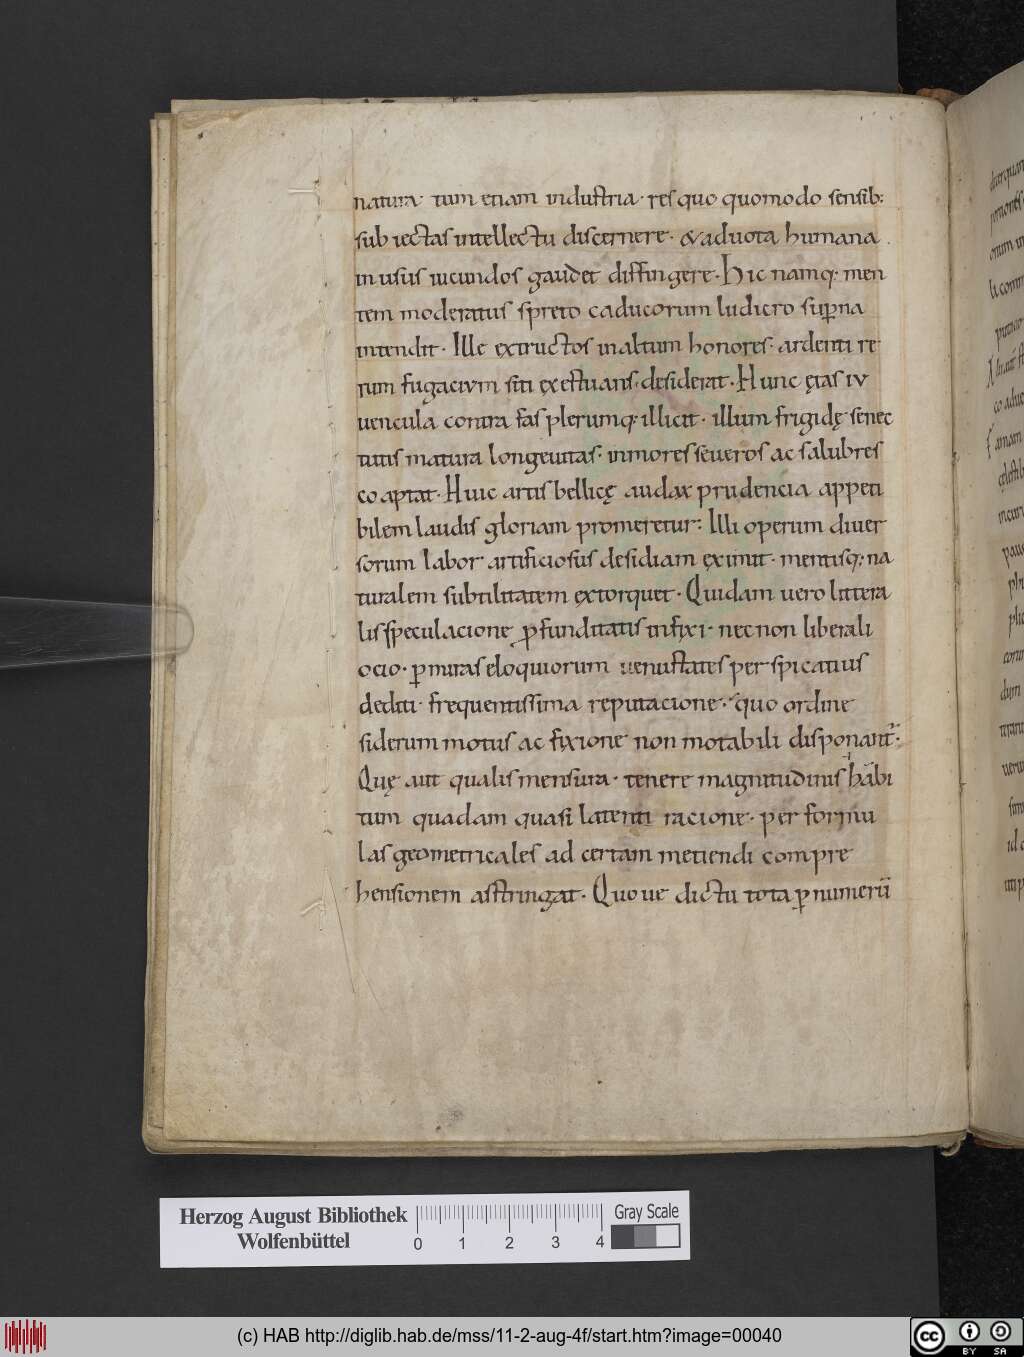 natura tum etiam industria· res quo quomodo sensib:
sub iectas intellectu discernere· & aduota humana
in usus iucundos gaudet diffingere· Hic namq· men
tem moderatus spreto caducorum ludicro sup̲na
intendit· Ille extructos inaltum honores· ardenti re
rum fugacium siti exestuans· desiderat· Hunc ętas iu
uencula contra fas plerumq· illicit· illum frigidę senec
tutis matura longeuitas· inmores seueros ac salubres
co aptat· Huic artis bellicę audax prudencia appeti
bilem laudis gloriam promeretur: Illi operum diuer
sorum labor artificiosus desidiam eximit· mentisq; na
turalem subtilitatem extorquet· Quidam uero littera
lis speculacione p̲funditatis infixi· necnon liberali
ocio· p̲ miras eloquiorum uenustates per spicatius
dediti· frequentissima reputacione· quo ordine
siderum motus ac fixione non motabili disponant᷑·
Quę aut qualis mensura· tenere magnitudinis habi
tum quadam quasi latenti racione· per formu
las geometricales ad certam metiendi compre
hensionem astringat· Quo ue dictu tota p̲ numerū
Herzog August Bibliothek
Wolfenbüttel
0 1 2 3 4
Gray Scale
(c) HAB http://diglib.hab.de/mss/11-2-aug-4f/start.htm?image=00040
cc BY SA